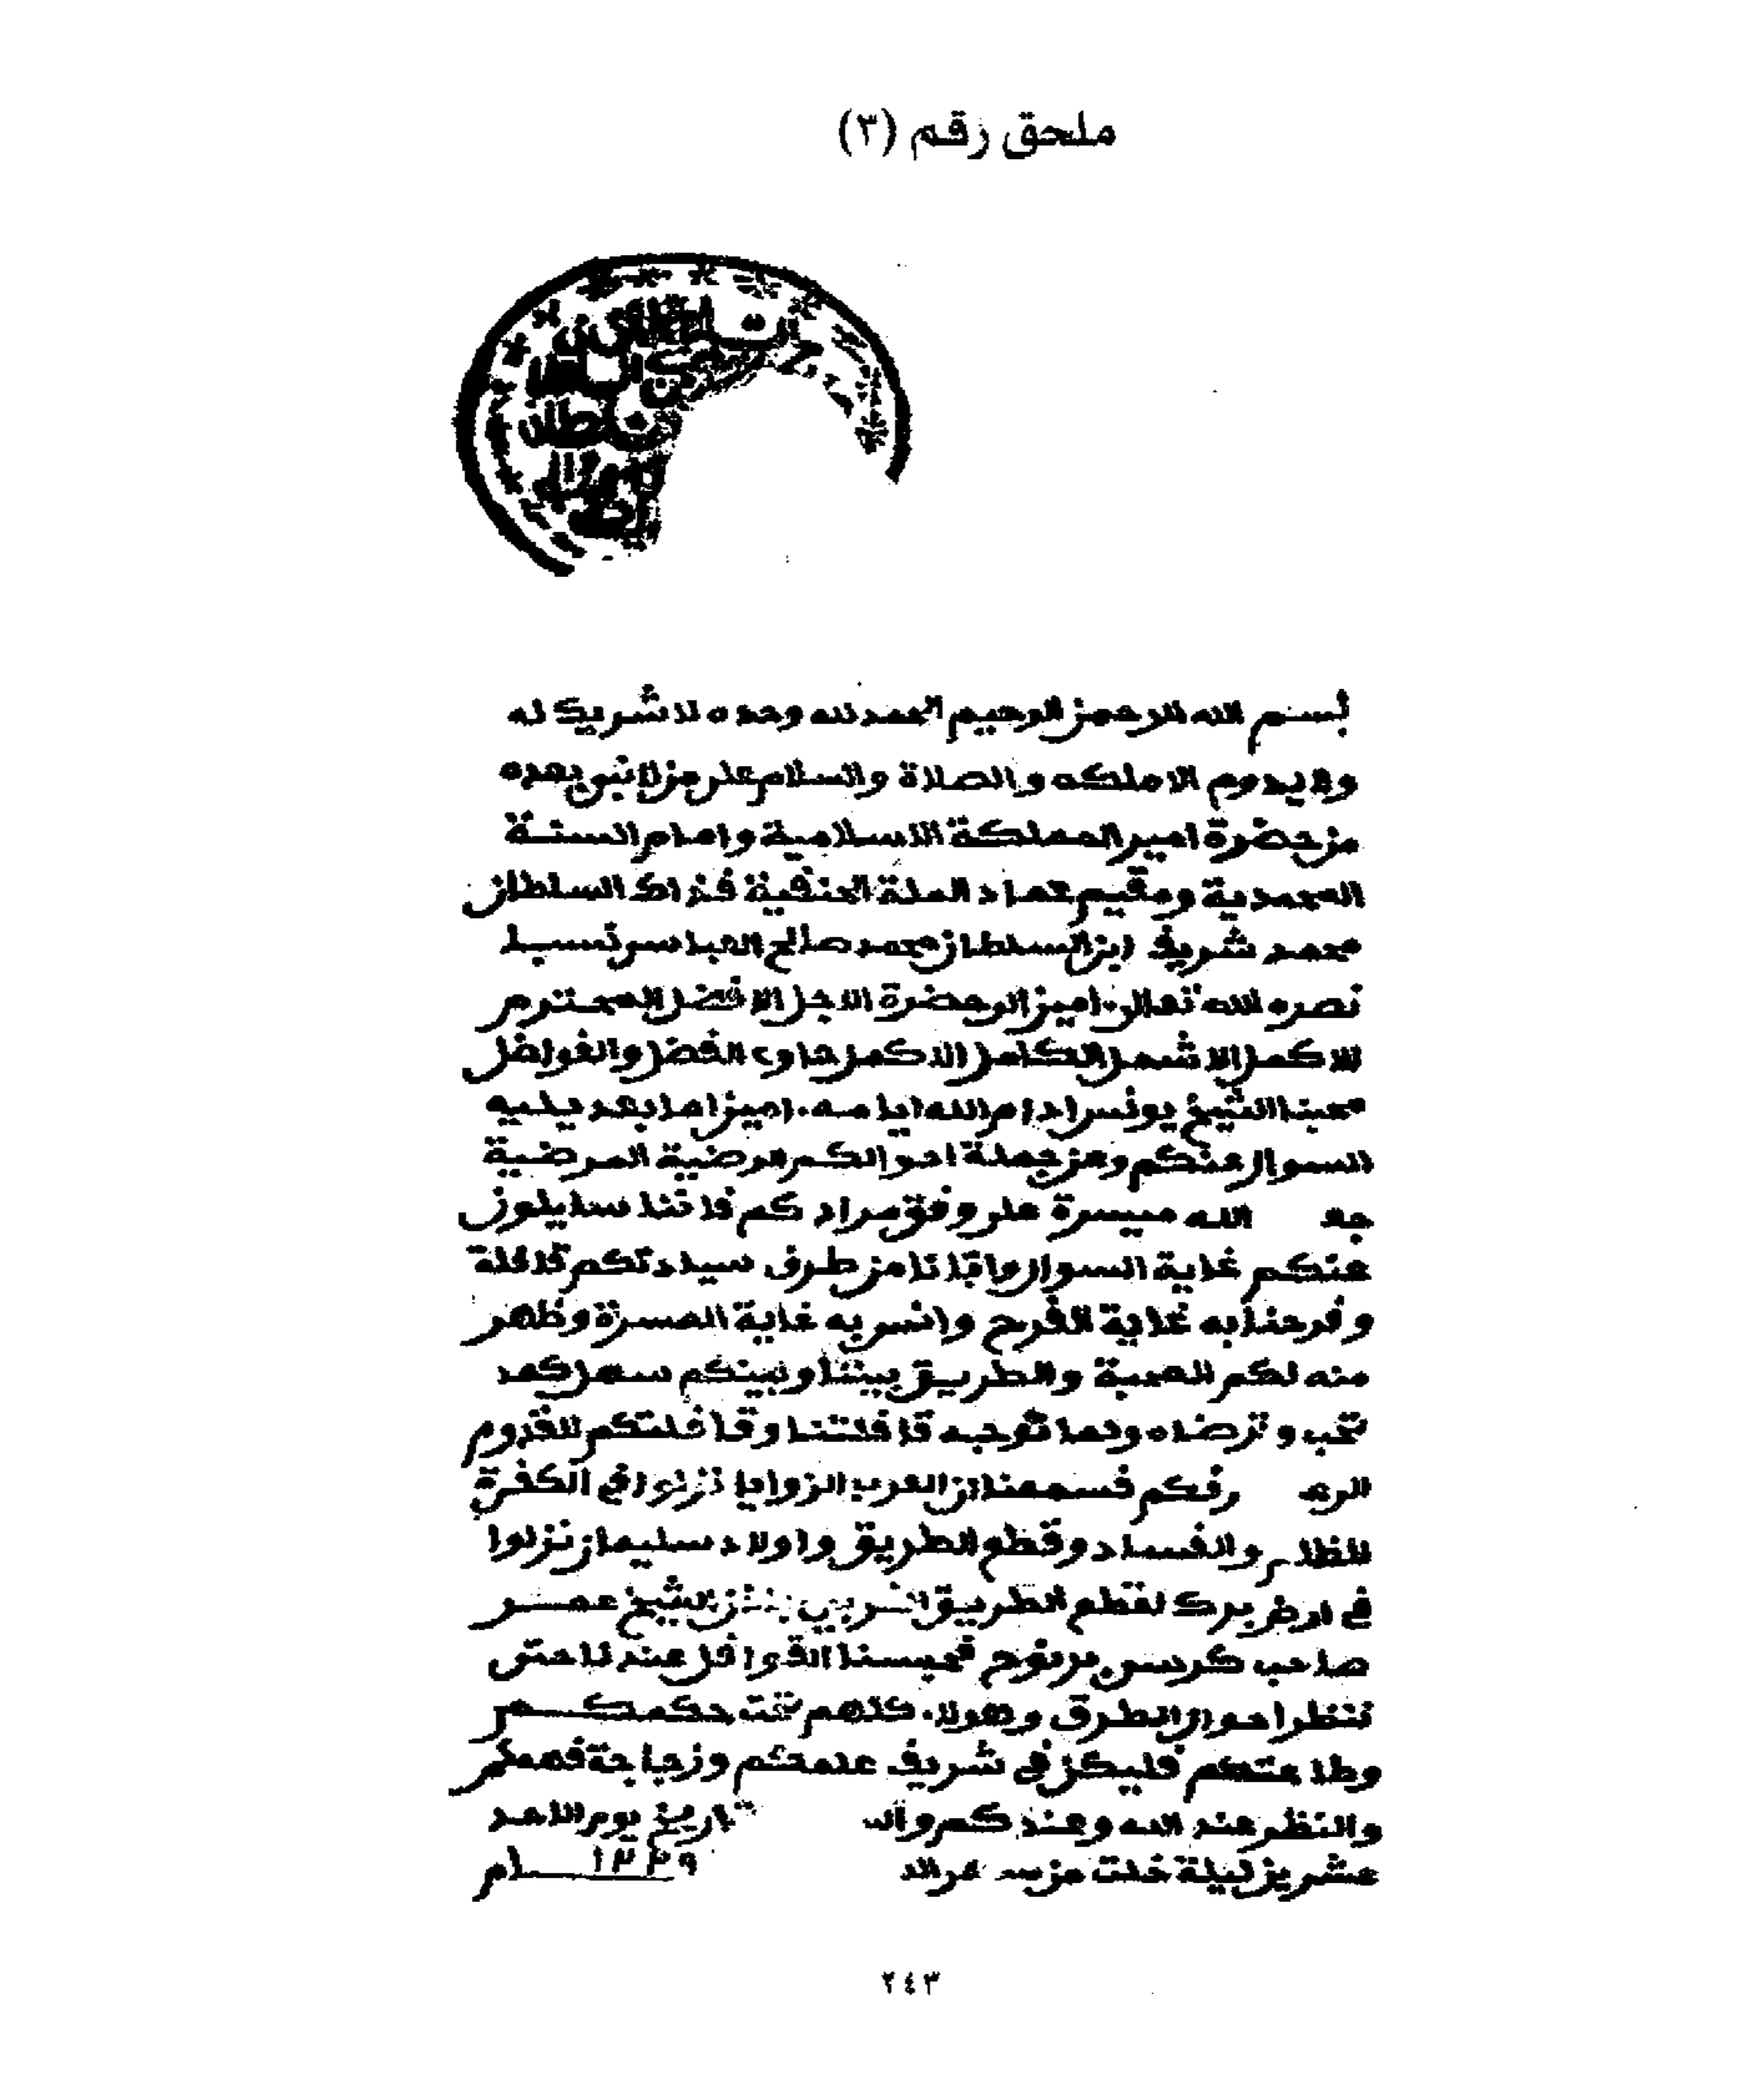 ملحق رقم (٣)
بسم الله الرحمن الرحيم الحمد لله وحده لا شريك له
ولا يدوم الا ملكه والصلاة والسلام على من لا نبي بعده
من حضرة امير المملكة الاسلامية وامام السنة
المحمدية ومقيم عماد الملة الحنفية فذاك السلطان
محمد شريف ابن السلطان محمد صالح العباسي نسبا
نصره الله تعالى امين الى حضرة الاجل الافضل المحترم
الاكمل الاشمل الكامل الاكمل حاوى الفضل والفواضل
محبنا الشيخ يونس ادام الله ايامه امين اما بعد يليه
السوال عنكم وعن جملة احوالكم مرضية المرضية
الله ميسرة على وفق مرادكم فاننا سايلون
عنكم غاية السوال واتانا من طرف سيادتكم قافلة
وفرحنا به غاية الفرح وانسر به غاية المسرة وظهر
منه لكم المحبة والطريق بيننا وبينكم سهل كمد
تحب وترضاه ولما توجه قافلتنا وقافلتكم للقدوم
فسمعنا ان العرب الزوايا نزلوا في الكفرة
للظلم والفساد وقطع الطريق واولاد سليمان نزلوا
في ارض برك لقطع الطريق الشيخ عمر
صاحب كرسي برنوح فحبسنا القوافل عندنا حتى
ننظر احوال الطرق وهولاء كلهم تحت حكمكم
وطاعتكم فليكن في شريف علمكم وزجاجة فهمكم
والنظر عند الله وعندكم تاريخ يوم الاحد
عشرين ليلة خلت من ١٣٢٩
٢٤٣